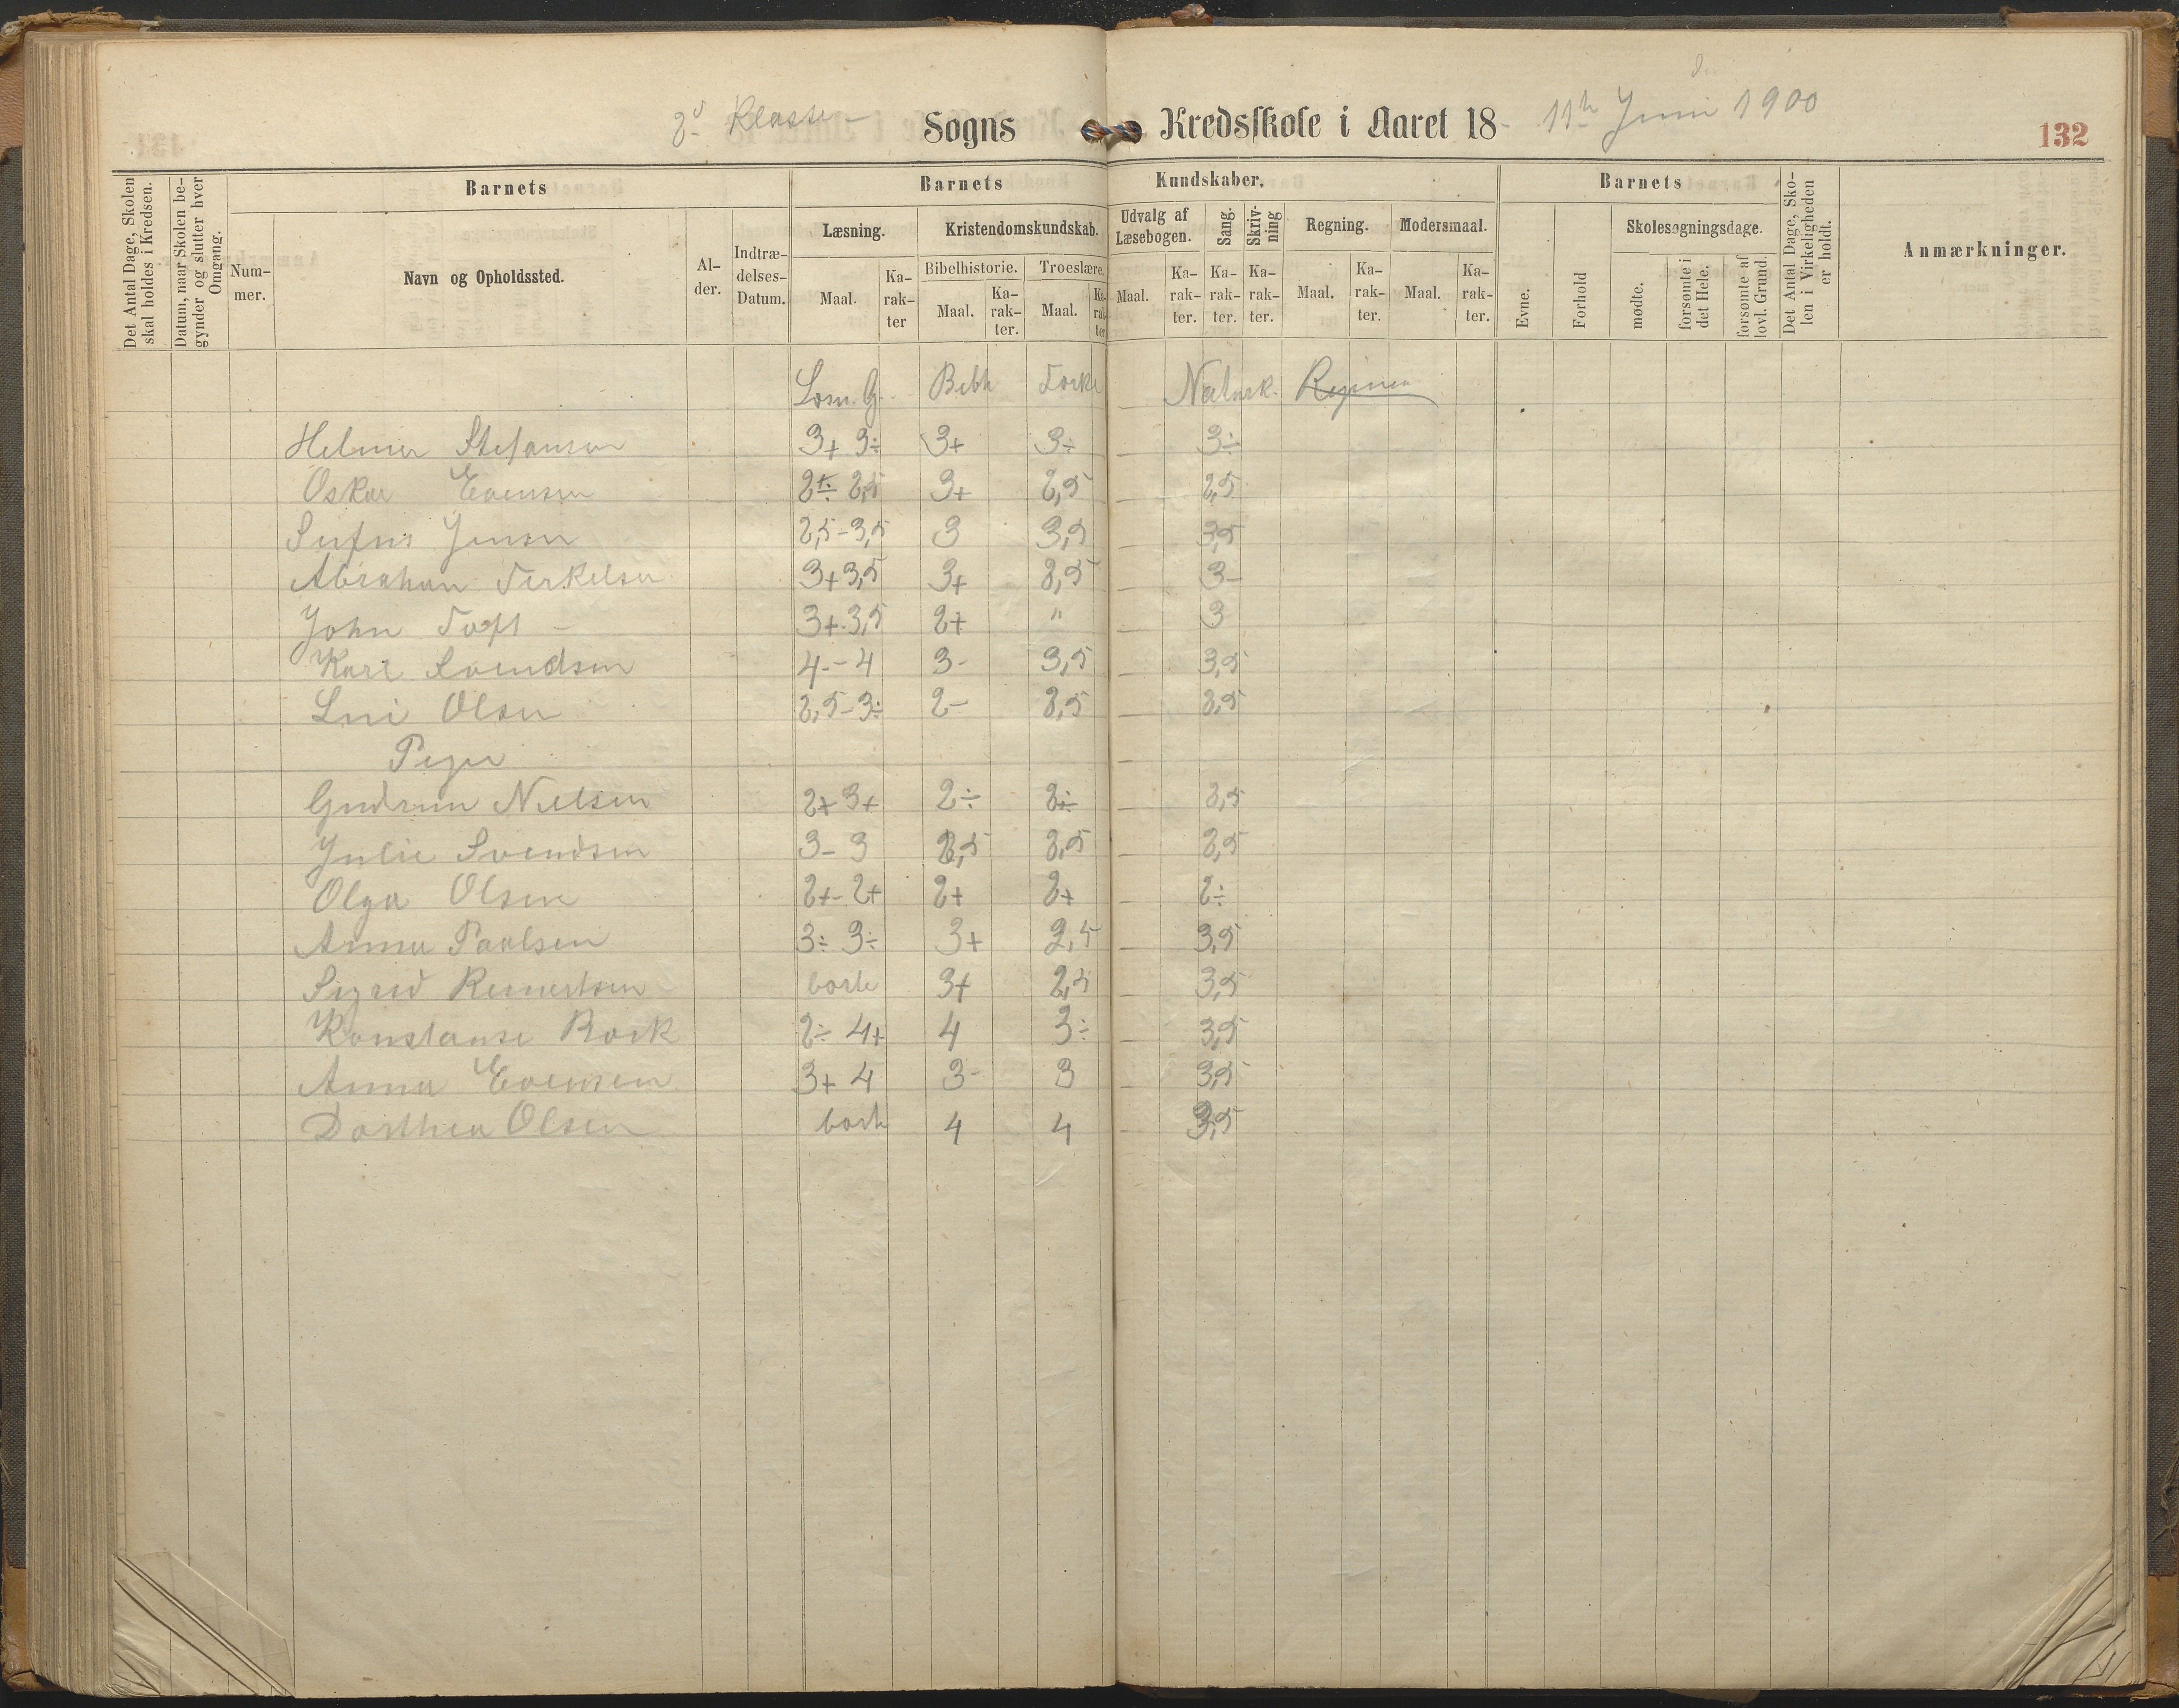 2d Klasse –
Sogns Kredsskole i Aaret 18- 11th Juni 1900
132
Det Antal Dage, Skolen skal holdes i Kredsen.
Datum, naar Skolen begynder og slutter hver Omgang.
Barnets
Nummer.
Navn og Opholdssted.
Alder.
Indtrædelses-Datum.
Barnets Kundskaber.
Læsning.
Maal.
Karakter
Kristendomskundskab.
Bibelhistorie.
Maal.
Karakter.
Troeslære.
Maal.
Karakter
Udvalg af Læsebogen.
Maal.
Karakter.
Sang.
Karakter.
Skrivning
Karakter.
Regning.
Maal.
Karakter.
Modersmaal.
Maal.
Karakter.
Barnets
Evne.
Forhold
Skolesøgningsdage.
mødte.
forsømte i det Hele.
forsømte af lovl. Grund.
Det Antal Dage, Skolen i Virkeligheden er holdt.
Anmærkninger.
Læsn. G. Bibh Forkl
Helmer Stefansen 3+ 3÷ 3+ 3÷ 3÷
Oskar Evensen 2,5 3+ 2,5 2,5
Jensen 2,5-3,5 3 3,5 3,5
Abraham Terkelsen 3+3,5 3+ 2,5 3-
John Toft – 3+.3,5 2+ " 3
Karl Svendsen 4--4 3- 3,5 3,5
Olsen 2,5-3÷ 2- 2,5 2,5
Piger
Gudrun Nielsen 2+ 3+ 2÷ 2÷ 2,5
Julie Svendsen 3-3 2,5 2,5 2,5
Olga Olsen 2+-2+ 2+ 2+ 2÷
Anna Paulsen 3÷ 3÷ 3+ 2,5 3,5
Sigrid Reinertsen borte 3+ 2,5 3,5
Konstanse Bork 2÷ 4+ 4 3÷ 3,5
Anna Evensen 3+ 4 3- 3 3,5
Dorthea Olsen borte 4 4 3,5